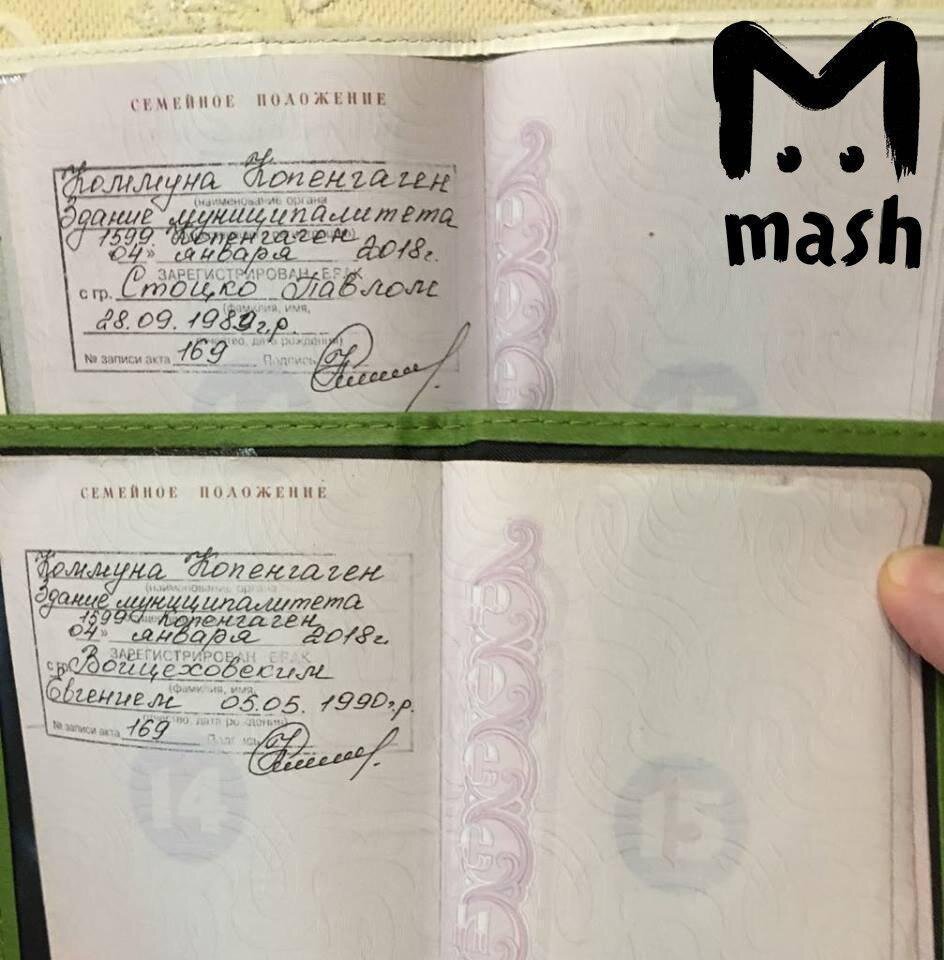 mash
СЕМЕЙНОЕ ПОЛОЖЕНИЕ
Коммуна Копенгаген
(наименование органа
Здание муниципалитета
1599 Копенгаген
04» января 2018г.
ЗАРЕГИСТРИРОВАН БРАК
с гр. Стоцко Павлом
(фамилия, имя,
28.09.1989г.р.
отчество, дата рождения)
№ записи акта 169 Подпись
СЕМЕЙНОЕ ПОЛОЖЕНИЕ
Коммуна Копенгаген
(наименование органа
Здание муниципалитета
1599 Копенгаген
04» января 2018г.
ЗАРЕГИСТРИРОВАН БРАК
с гр. Войцеховским
(фамилия, имя,
Евгением 05.05.1990г.р.
отчество, дата рождения)
№ записи акта 169 Подпись
14 15